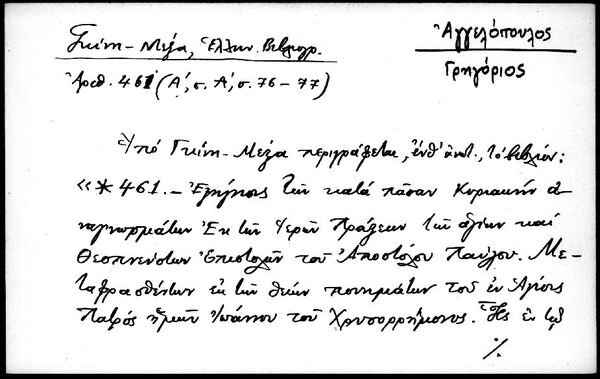 Γκίνη-Μέξα, Ἑλλην. Βιβλιογρ.
Ἀριθ. 461 (Α', σ. Α', σ. 76-77)
Ἀγγελόπουλος
Γρηγόριος
Ὑπό Γκίνη-Μέξα περιγράφεται, ἐνθ' ἀνωτ., τό βιβλίον:
«*461.- Ἐξήγησις τῶν κατά πᾶσαν Κυριακήν ἀ-
ναγνωσμάτων ἐκ τῶν Ἱερῶν Πράξεων τῶν ἁγίων καί
Θεοπνεύστων Ἐπιστολῶν τοῦ Ἀποστόλου Παύλου. Με-
ταφρασθέντων ἐκ τῶν θείων πονημάτων τοῦ ἐν Ἁγίοις
Πατρός ἡμῶν Ἰωάννου τοῦ Χρυσορρήμονος. Ἧς ἐν τῷ
%.